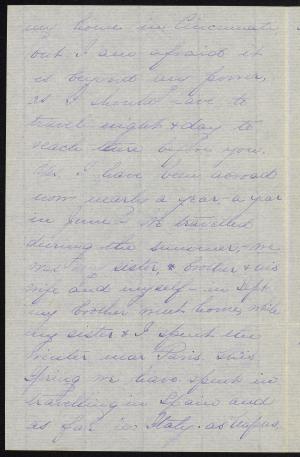 my home in Cincinnati
but I am afraid it
is beyond my power,
as I should have to
travel night & day to
reach there before you.
Yes I have been abroad
now nearly a year - a year
in June. We travelled
during the summer, - we
was my sister, & brother & his
wife and myself - in Sept
my brother went home, while
my sister & I spent the
winter near Paris. This
Spring we have spent in
travelling in Spain and
as far in Italy as Naples.